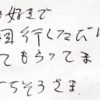 好きで
回行くたびに
てもらってま
ごちそうさま